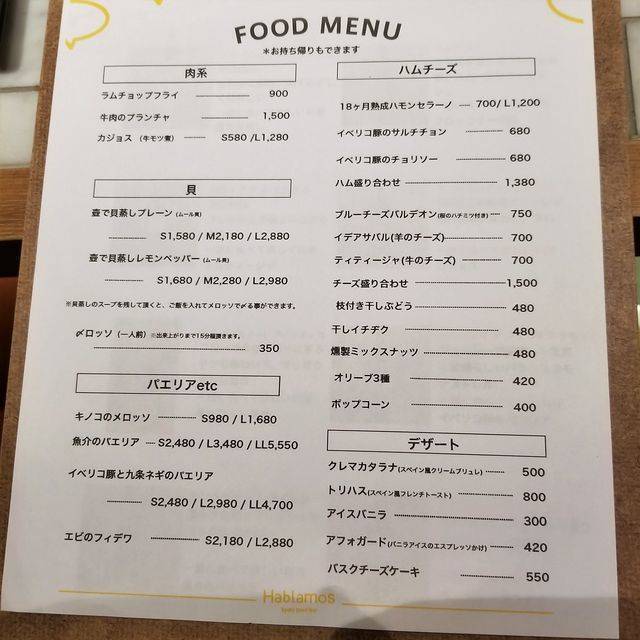 FOOD MENU
＊お持ち帰りもできます
肉系
ラムチョップフライ 900
牛肉のプランチャ 1,500
カジョス (牛モツ煮) S580 /L1,280
貝
壺で貝蒸しプレーン (ムール貝)
S1,580 / M2,180 / L2,880
壺で貝蒸しレモンペッパー (ムール貝)
S1,680 / M2,280 / L2,980
※貝蒸しのスープを残して頂くと、ご飯を入れてメロッソで〆る事ができます。
〆メロッソ (一人前) ※出来上がりまで15分程頂きます。
350
パエリアetc
キノコのメロッソ S980 / L1,680
魚介のパエリア S2,480 / L3,480 / LL5,550
イベリコ豚と九条ネギのパエリア
S2,480 / L2,980 / LL4,700
エビのフィデワ S2,180 / L2,880
ハムチーズ
18ヶ月熟成ハモンセラーノ 700/ L1,200
イベリコ豚のサルチチョン 680
イベリコ豚のチョリソー 680
ハム盛り合わせ 1,380
ブルーチーズバルデオン(桜のハチミツ付き) 750
イデアサバル(羊のチーズ) 700
ティティージャ(牛のチーズ) 700
チーズ盛り合わせ 1,500
枝付き干しぶどう 480
干しイチヂク 480
燻製ミックスナッツ 480
オリーブ3種 420
ポップコーン 400
デザート
クレマカタラナ(スペイン風クリームブリュレ) 500
トリハス(スペイン風フレンチトースト) 800
アイスバニラ 300
アフォガード(バニラアイスのエスプレッソかけ) 420
バスクチーズケーキ 550
Hablamos